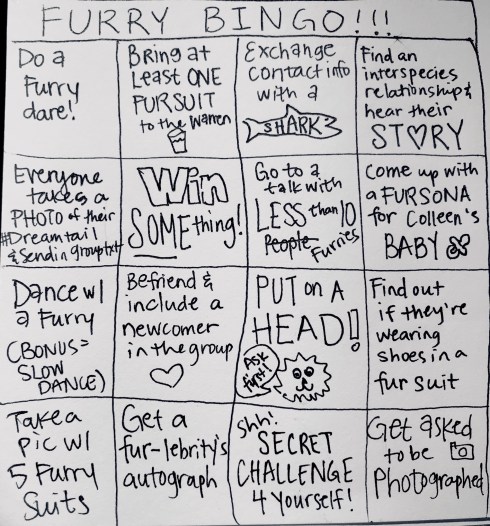 FURRY BINGO!!!
Do a
Furry
dare!
Bring at
Least ONE
FURSUIT
to the Warren
Exchange
contact info
with a
SHARK
Find an
interspecies
relationship &
hear their
STORY
Everyone
takes a
PHOTO of their
#Dreamtail
& send in grouptxt
Win
SOMEthing!
Go to a
talk with
LESS than 10
People
Furries
Come up with
a FURSONA
for Colleen's
BABY
Dance w/
a Furry
(BONUS=
SLOW
DANCE)
Befriend &
include a
newcomer
in the group
PUT on A
HEAD!
Ask
first!
Find out
if they're
wearing
shoes in a
fur suit
Take a
pic w/
5 Furry
Suits
Get a
fur-lebrity's
autograph
Shh!
SECRET
CHALLENGE
4 Yourself!
Get asked
to be
Photographed